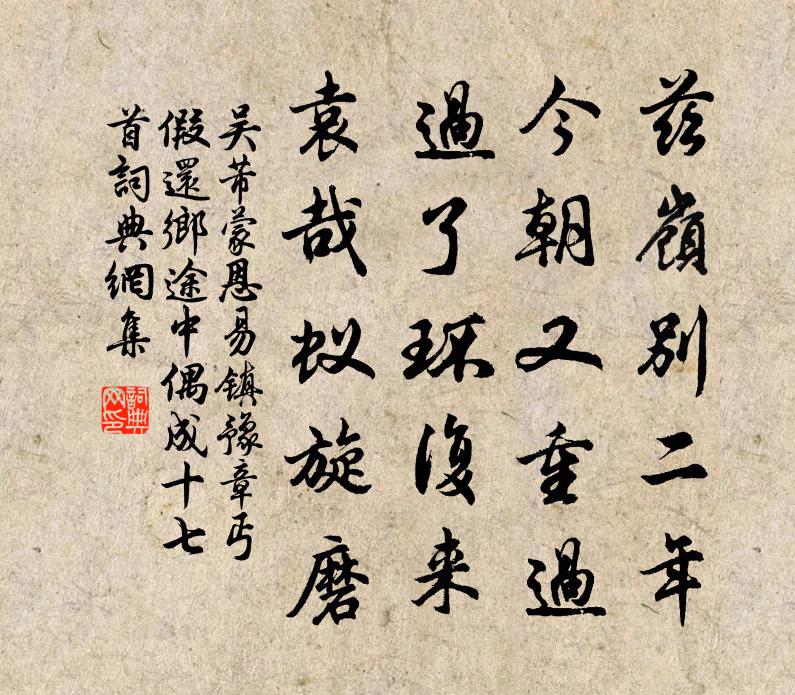 茲嶺別二年
今朝又重過
過了环復来
袁哉蚁旋磨
吴芾蒙恩易鎮豫章丐
假還鄉途中偶成十七
首詞典網集
詞典网印